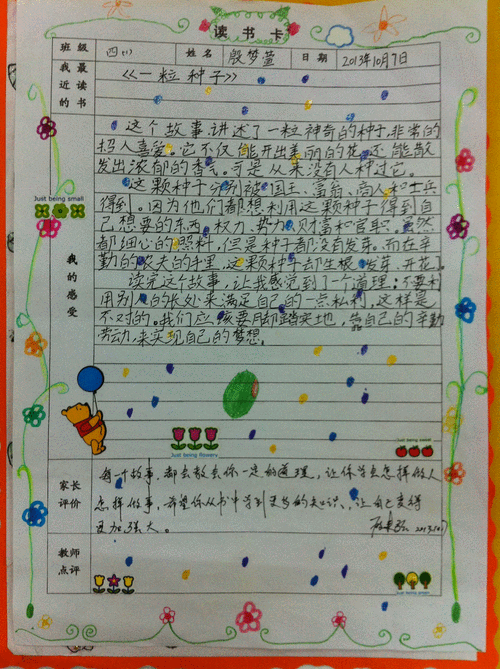 读书卡
班级 四(1) 姓名 殷梦萱 日期 2013年10月9日
我最近读的书 《一粒种子》
这个故事讲述了一粒神奇的种子,非常的
招人喜爱。它不仅能开出美丽的花,还能散
发出浓郁的香气。可是从来没有人种过它。
这颗种子分别被国王、富翁、商人和士兵
得到。因为他们都想利用这颗种子得到自
己想要的东西,权力、势力、财富和官职。虽然
都细心的照料,但是种子都没有发芽。而在辛
勤的农夫的手里,这颗种子却生根、发芽、开花了。
读完这个故事,让我感觉到了一个道理:不要利
用别人的长处来满足自己的一点私利,这样是
不对的。我们应该要脚踏实地,靠自己的辛勤
劳动,来实现自己的梦想。
Just being small
我的感受
Just being flowery
Just being sweet
家长评价
每一个故事,都会教会你一定的道理,让你学会怎样做人
怎样做事,希望你从书中学到更多的知识,让自己变得
更加强大。
2013.10.9
教师点评
Just being green